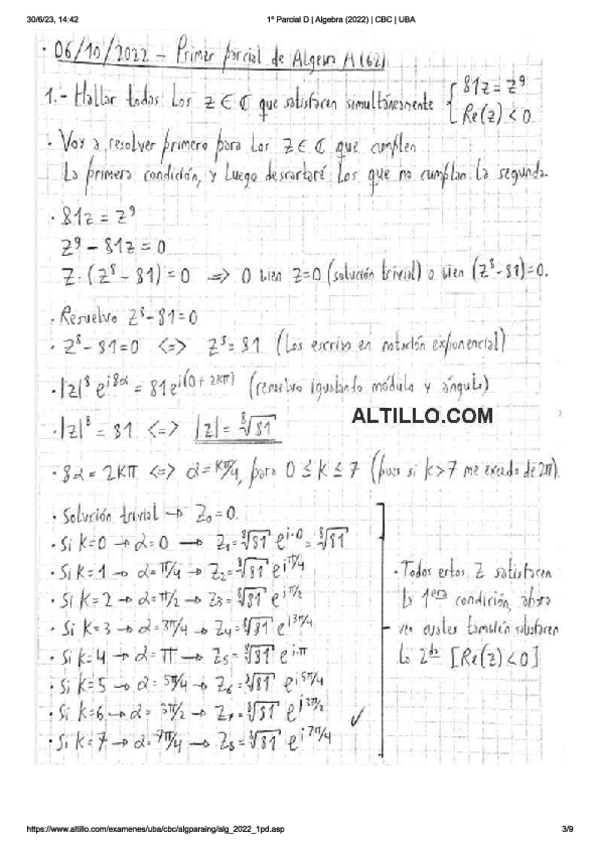 30/6/23, 14:42
1º Parcial D | Algebra (2022) | CBC | UBA
· 06/10/2022 – Primer parcial de Algebra A (62)
1.- Hallar todos los z ∈ ℂ que satisfacen simultáneamente { 81z = z⁹
Re(z) < 0
· Voy a resolver primero para los z ∈ ℂ que cumplen
la primera condición, y luego descartaré los que no cumplan la segunda.
· 81z = z⁹
z⁹ – 81z = 0
z·(z⁸ – 81) = 0 => 0 bien z=0 (solución trivial) o bien (z⁸-81)=0.
· Resuelvo z⁸-81=0
· z⁸-81=0 <=> z⁸=81 (los escribo en notación exponencial)
· |z|⁸ e^i8α = 81e^i(0+2kπ) (resuelvo igualando módulo y ángulo)
· |z|⁸ = 81 <=> |z| = ⁸√81
ALTILLO.COM
· 8α = 2kπ <=> α = kπ/4, para 0 ≤ k ≤ 7 (pues si k>7 me excedo de 2π).
· Solución trivial → z₀=0.
· Si k=0 → α=0 → z₁=⁸√81 e^i·0 = ⁸√81
· Si k=1 → α=π/4 → z₂=⁸√81 e^iπ/4
· Si k=2 → α=π/2 → z₃=⁸√81 e^iπ/2
· Si k=3 → α=3π/4 → z₄=⁸√81 e^i3π/4
· Si k=4 → α=π → z₅=⁸√81 e^i·π
· Si k=5 → α=5π/4 → z₆=⁸√81 e^i5π/4
· Si k=6 → α=3π/2 → z₇=⁸√81 e^i3π/2
· Si k=7 → α=7π/4 → z₈=⁸√81 e^i7π/4
✓
· Todos estos z satisfacen
la 1era condición, ahora
veo cuales también satisfacen
la 2da [Re(z)<0]
https://www.altillo.com/examenes/uba/cbc/algparaing/alg_2022_1pd.asp
3/9